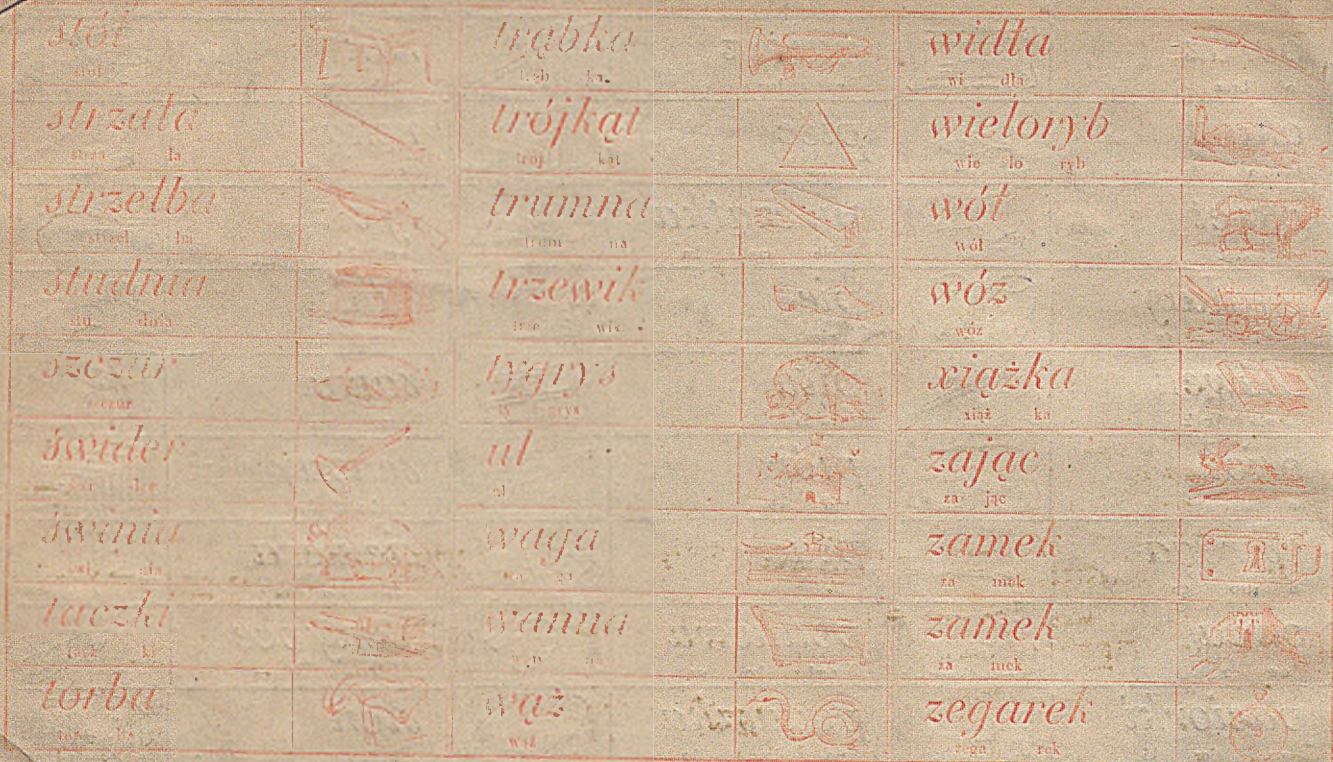 stół
stół
strzała
strza ła
strzelba
strzel ba
studnia
stu dnia
szczur
szczur
świder
świ der
świnia
świ nia
taczki
tacz ki
torba
tor ba
trąbka
trąb ka
trójkąt
trój kąt
trumna
trum na
trzewik
trze wik
tygrys
ty grys
ul
ul
waga
wa ga
wanna
wąż
wąż
widła
wi dła
wieloryb
wie lo ryb
wół
wół
wóz
wóz
xiążka
xiąż ka
zając
za jąc
zamek
za mek
zamek
za mek
zegarek
zega rek